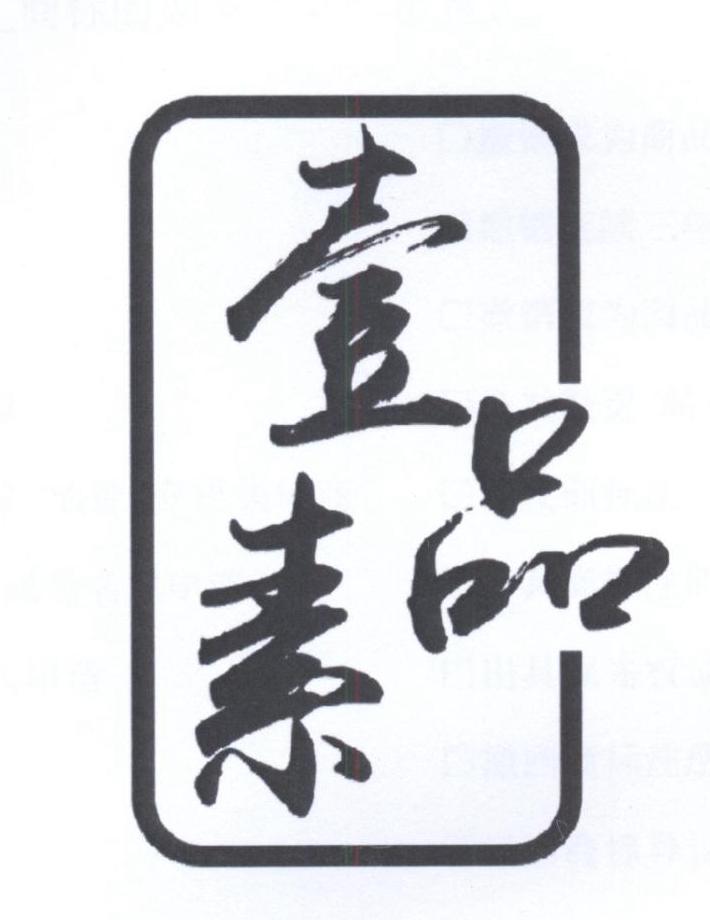 壹品素